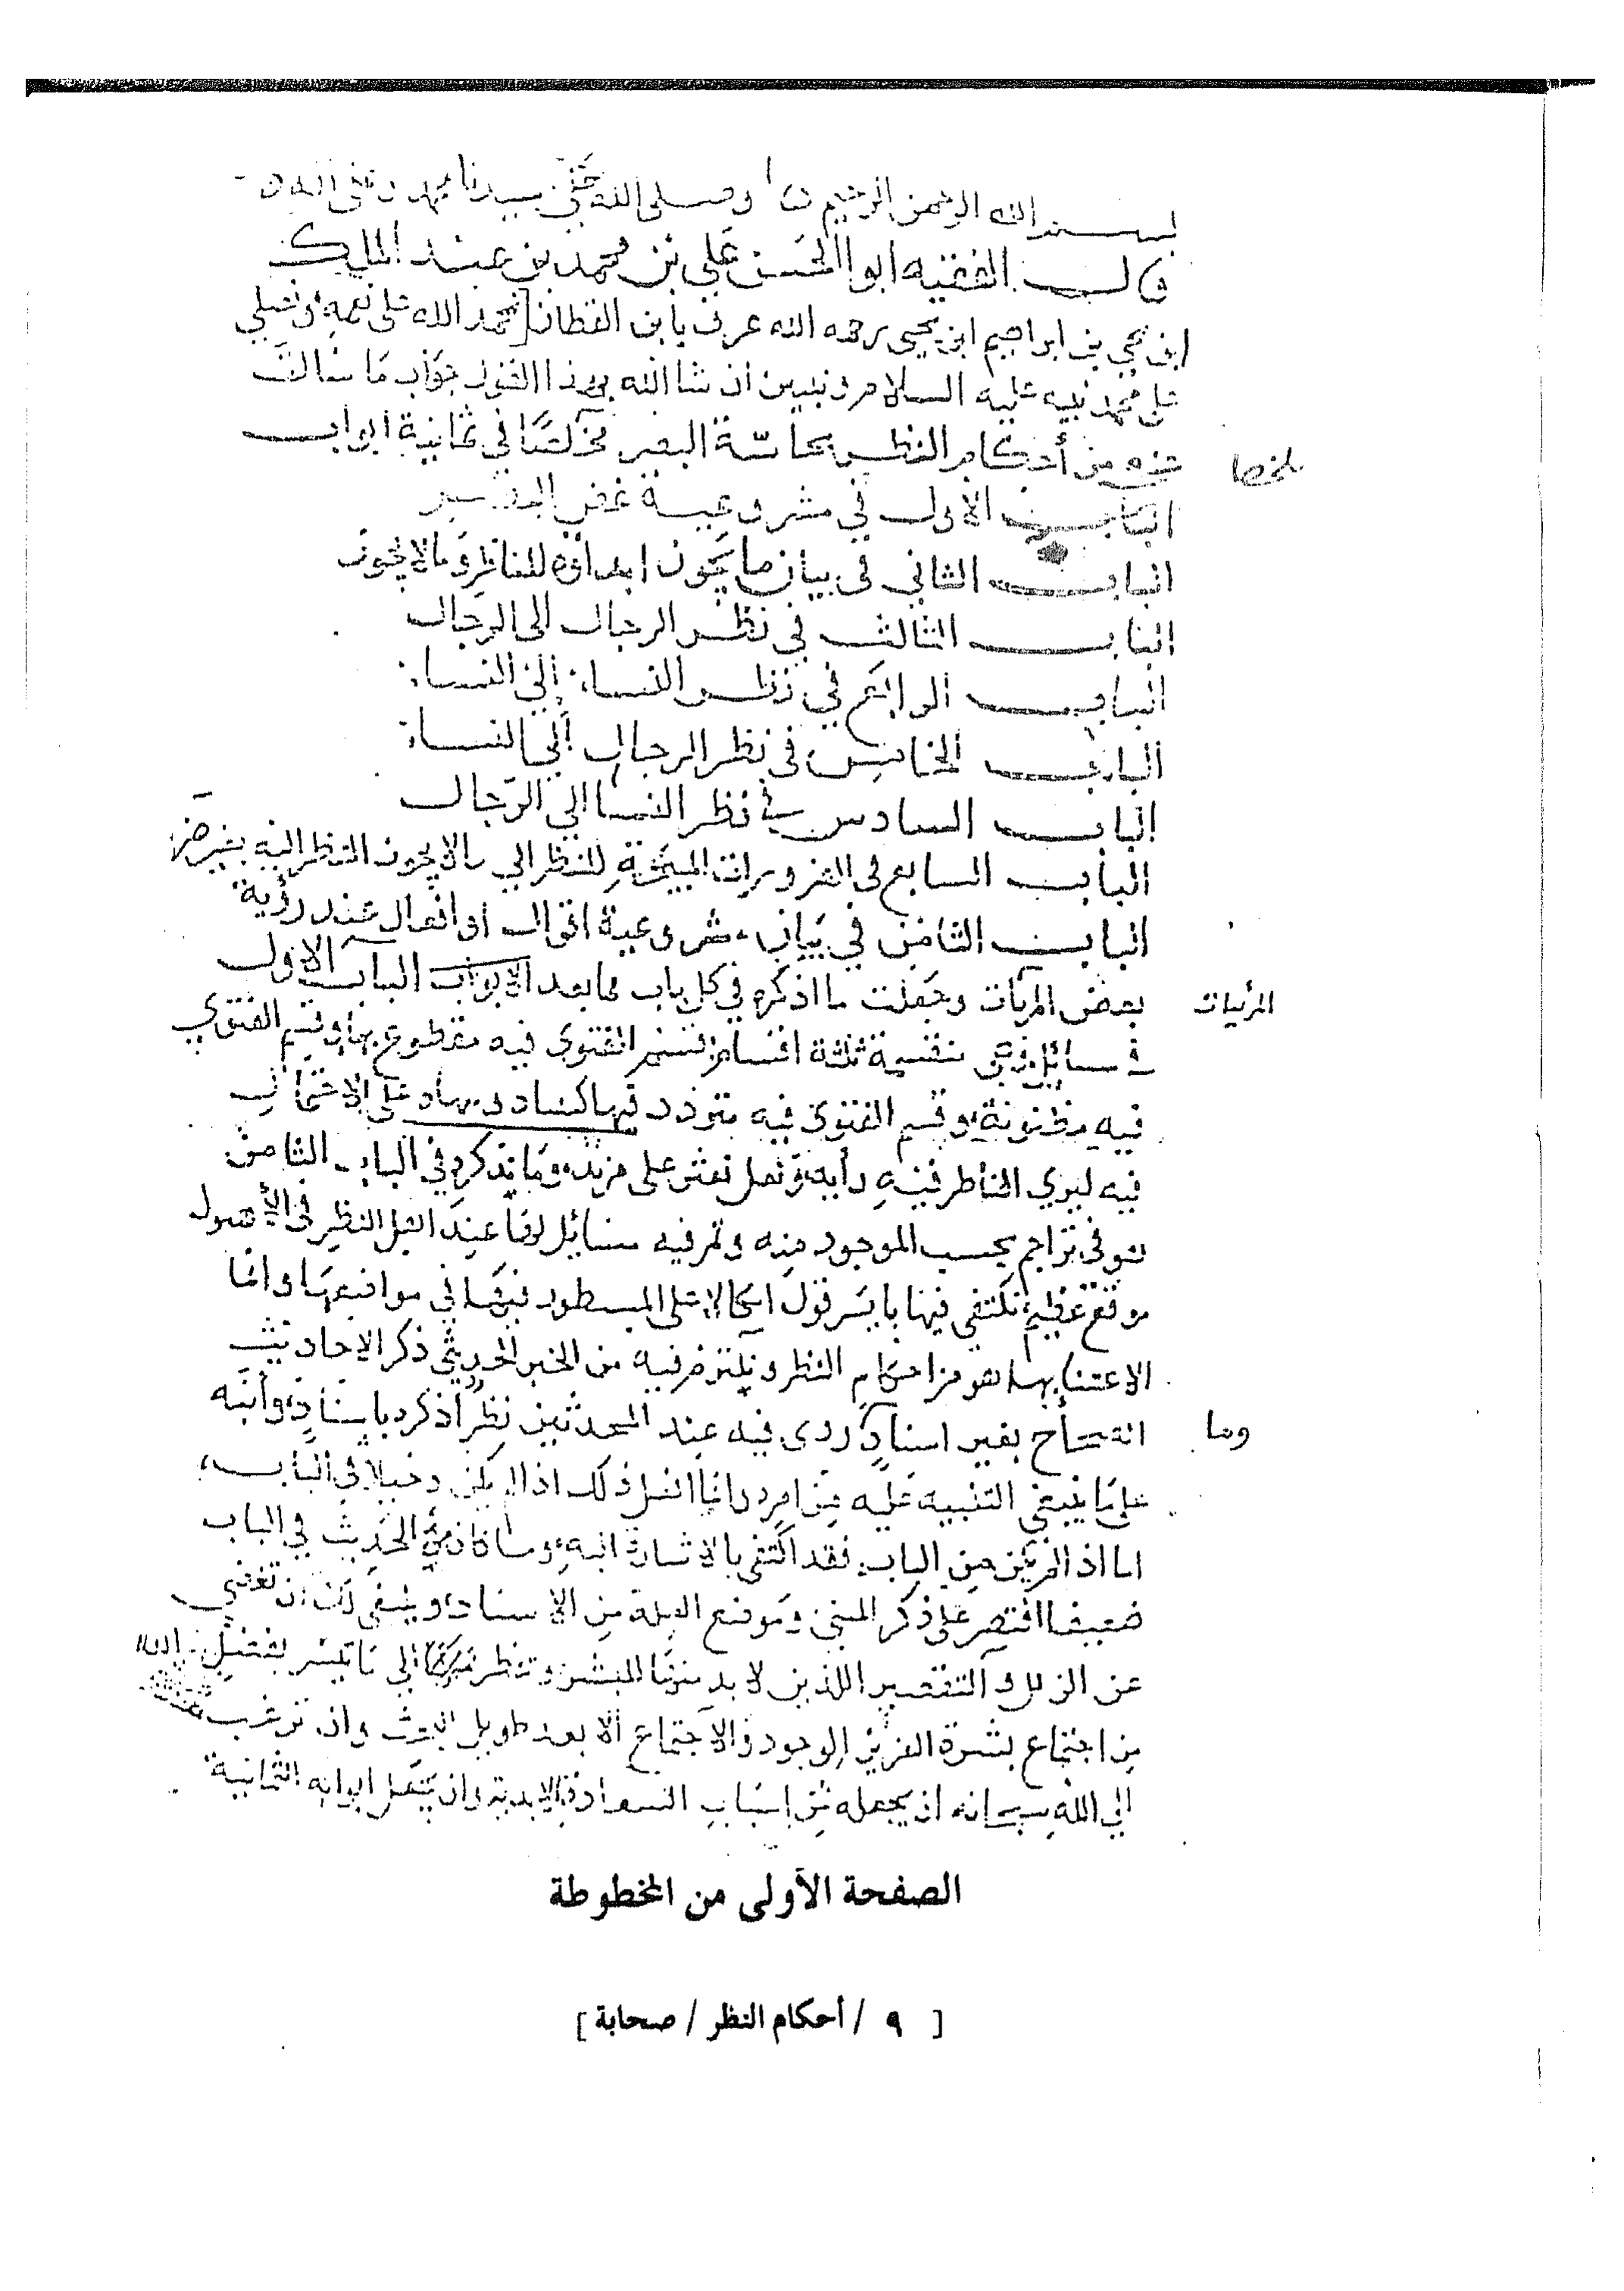 بسم الله الرحمن الرحيم وصلى الله على سيدنا محمد وعلى اله
قال الفقيه ابوا الحسن علي بن محمد بن عبد الملك
ابن يحي بن ابراهيم ابن يحيى رحمه الله عرف بابن القطان نحمد الله على نعمه ونصلي
على محمد نبيه عليه السلام ونبين ان شا الله بهذا القول جواب ما سالت
عنه من أحكام النظر بحاسّة البصر مخلصًا في ثمانية ابواب
ملخصا
الباب الاول في مشروعية غض البصر
الباب الثاني في بيان ما يجوز ابداؤه للناظر وما لا يجوز
الباب الثالث في نظر الرجال الى الرجال
الباب الرابع في نظر النساء إلى النساء
الباب الخامس في نظر الرجال إلى النساء
الباب السادس في نظر النسا الي الرجال
الباب السابع في الضرورات المبيحة للنظر الي ما لا يجوز النظر اليه بغير ضر
الباب الثامن في بيان مشروعية اقوال أو افعال عند رؤية
بعض المرآت وجعلت ما اذكره في كل باب مما بعد الابواب الباب الاول
المرئيات
في مسائل وهى منقسمة ثلثة اقسام قسم الفتوى فيه مقطوع بها وقسم الفتوي
فيه مظنونة وقسم الفتوى فيه متردد فيها على الاحتمال
فيه ليري الناظر فيه رأيه ولعل نعثر على مزيد وما نذكره في الباب الثامن
هو في تراجم بحسب الموجود منه وتمر فيه مسائل لها عند اهل النظر في الأصول
موقع عظيم نكتفي فيها بايسر قول احالة على المسطور فيها في مواضعها وانما
الاعتنا بها هو من احكام النظر ونلتزم فيه من الخبر الحديثي ذكر الاحاديث
الصحاح بغير اسناد روى فيه عند المحدثين نظر اذكره باسناده وأنبه
وما
على ما ينبغي التنبيه عليه من امره وانما افعل ذلك اذا لم يكن دخيلا في الباب
اما اذا لم يكن من الباب فقد اكتفى بالاشارة اليه وما كان من الحديث في الباب
ضعيفا اقتصر على ذكر المتن وموضع العلة من الاسناد وينبغي لك ان تغضي
عن الزلل والتقصير اللذين لا بد منهما للبشر وتنظر الي ما تيسر بفضل الله
من اجتماع العزيز الوجود والاجتماع الا بعد طويل البحث وان ترغب
الي الله سبحانه ان يجعله من اسباب السعادة الابدية وان يجعل ابوابه الثمانية
الصفحة الأولى من المخطوطة
[ ٩ / أحكام النظر / صحابة ]